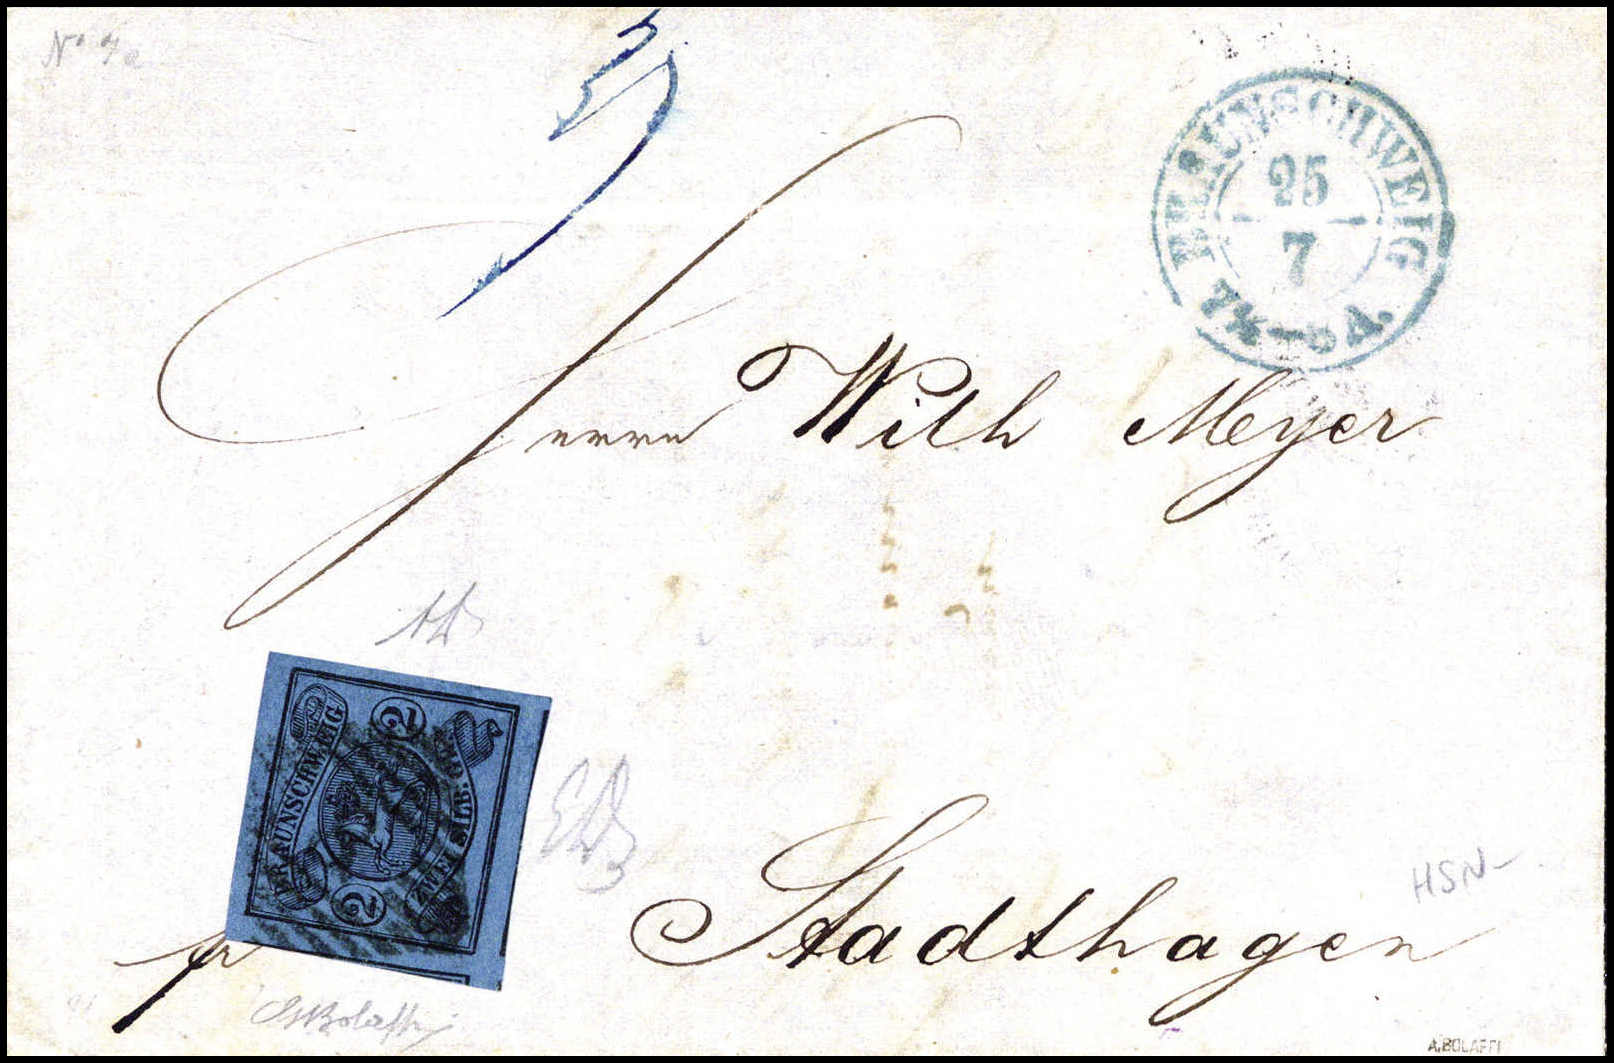 Nº 7a
BRAUNSCHWEIG
25
7
7½-8 A.
Herrn Wilh Meyer
BRAUNSCHWEIG
2
2
ZWEI SILB. GR.
HSN
Stadthagen
p
Bolaffi
A.BOLAFFI